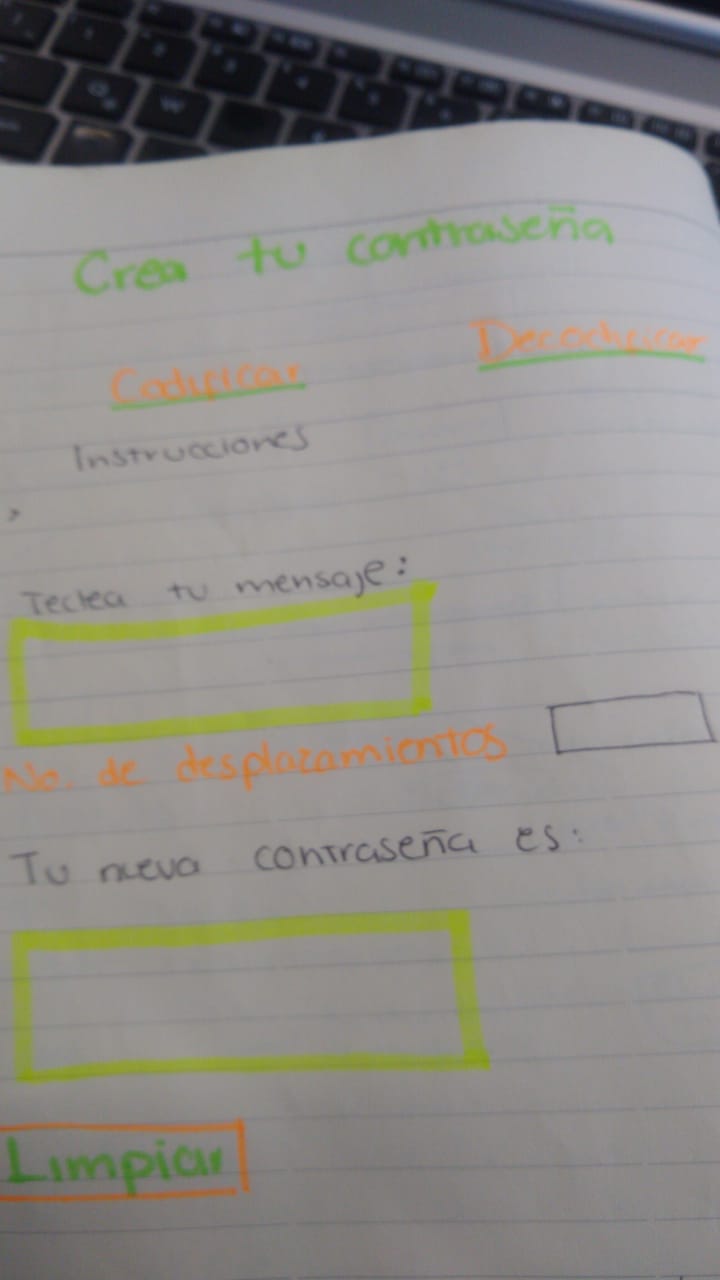 Crea tu contraseña
Codificar Decodificar
Instrucciones
Teclea tu mensaje:
No. de desplazamientos
Tu nueva contraseña es:
Limpiar